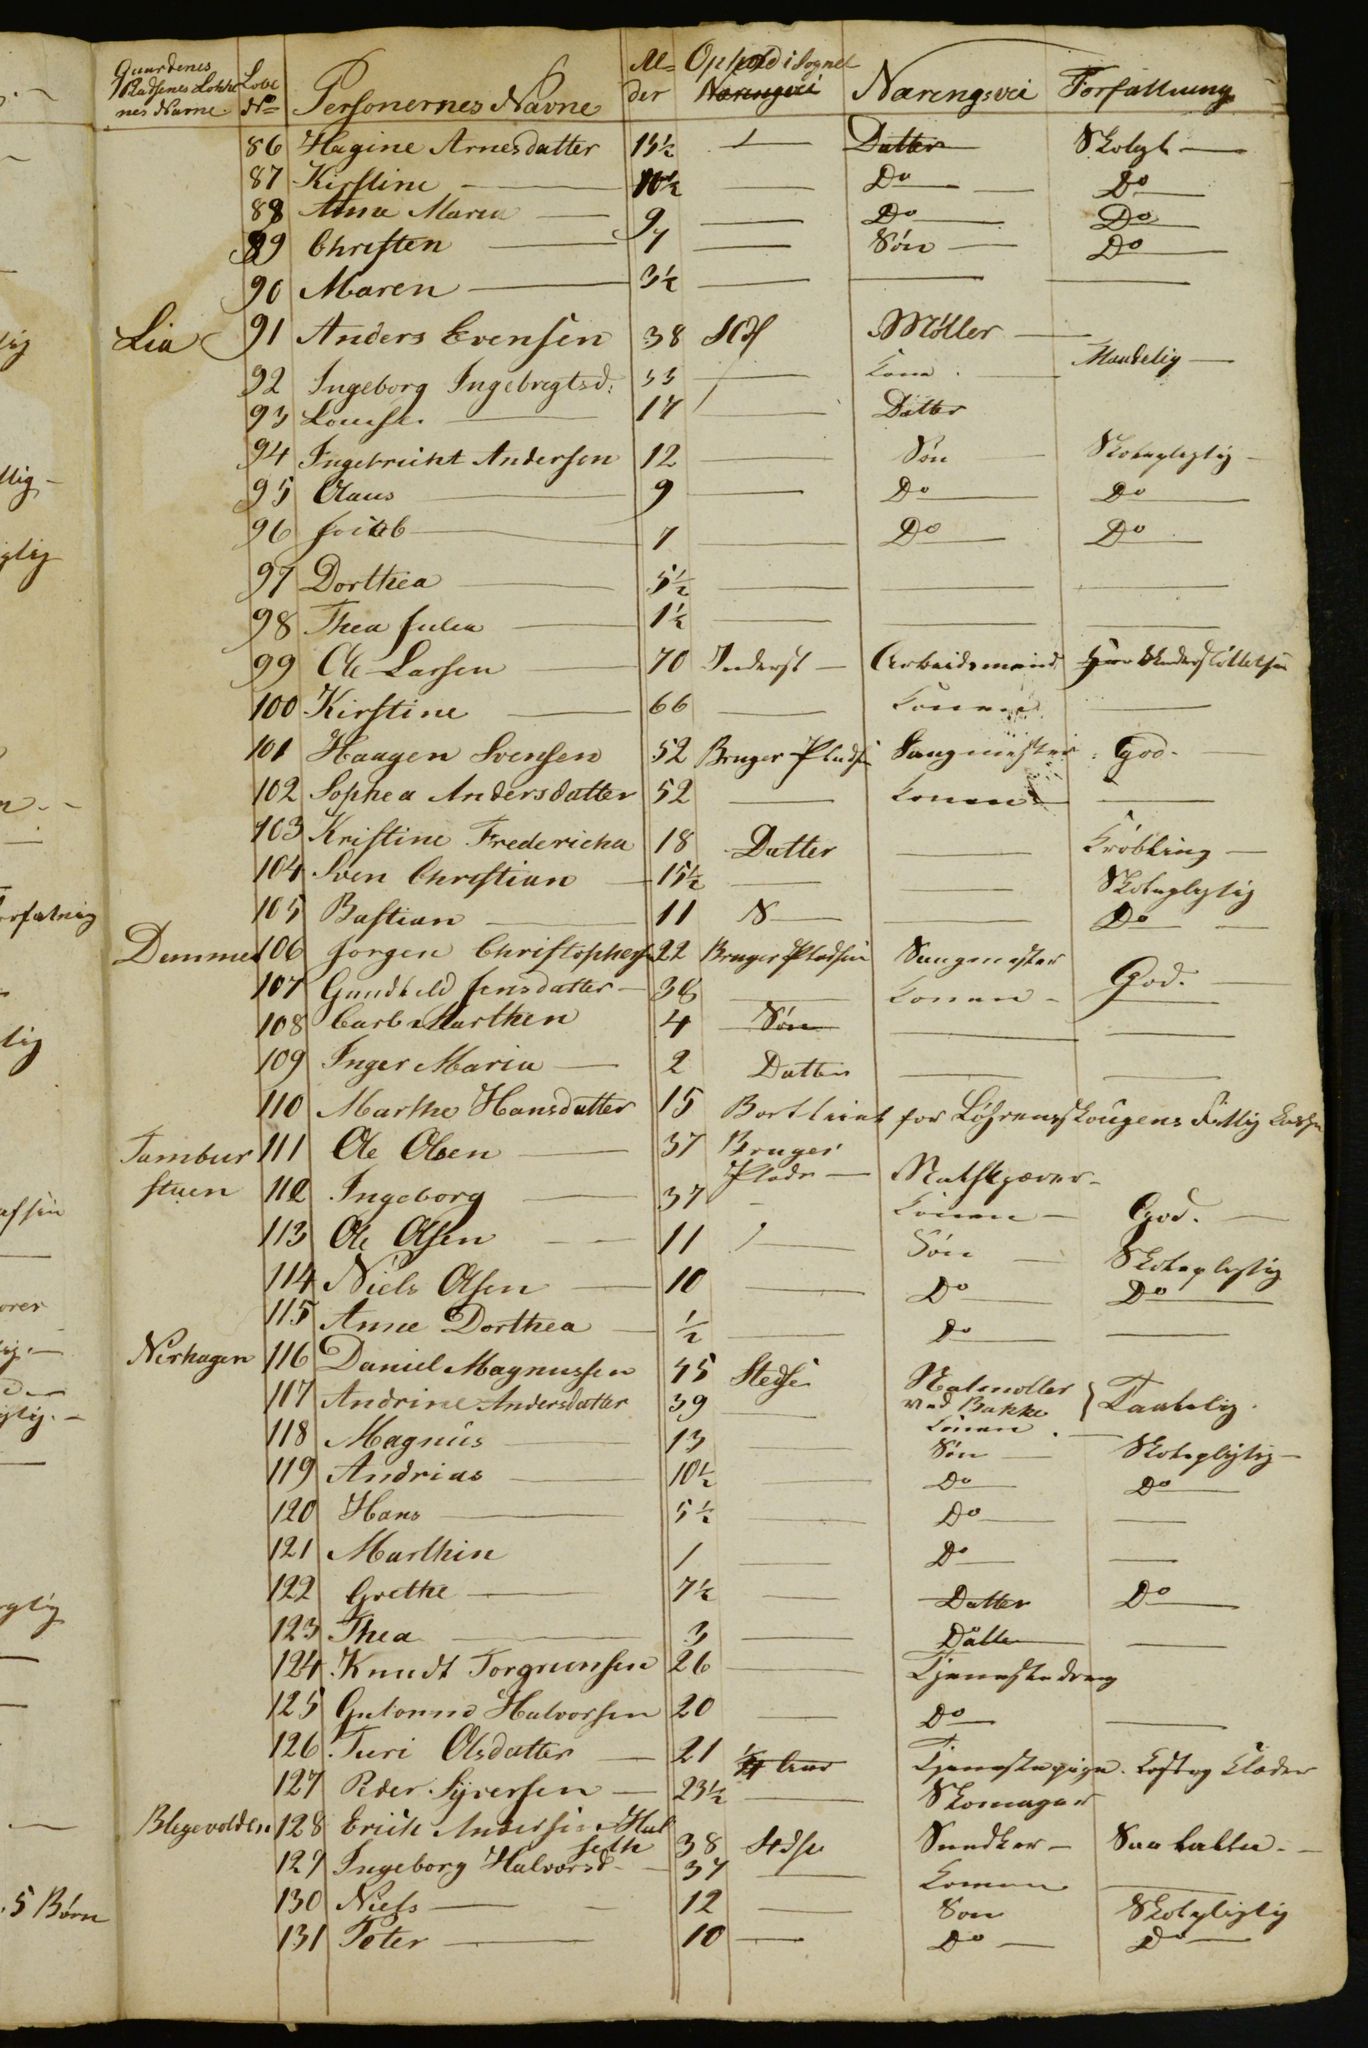 Gaardenes Pladsenes Løkkenes Navne | Løbe No | Personernes Navne | Alder | Ophold i Sognet | Næringsvei | Forfatning
86 Hagine Arnesdatter 13½ — Datter Skolepl —
87 Kirstine — 10½ — Do — Do
88 Anne Maria — 9 — Do — Do
89 Christen — 7 — Søn — Do
90 Maren — 3½ — — —
Lia 91 Anders Evensen 38 Møller —
92 Ingeborg Ingebregtsd: 33 — Kone. Maadelig —
93 Lovise. — 17 — Datter
94 Ingebricht Andersen 12 — Søn — Skolepligtig —
95 Olaus — 9 — Do — Do
96 Jacob — 7 — Do — Do
97 Dorthea — 5½ — — —
98 Thea Julia — 1½ — — —
99 Ole Larsen — 70 Inderst — Arbeidsmand
100 Kirstine — 66 — Konen —
101 Haagen Svensen 52 Bruger Pladsen Saugmester God. —
102 Sophea Andersdatter 52 — Konen —
103 Kristine Fredericha 18 Datter — Krøbling —
104 Sven Christian — 15½ — — Skolepligtig
105 Bastian — 11 S — — Do —
Dammen 106 Jørgen Christophersen 22 Bruger Pladsen Saugmester
107 Gundhild Jensdatter — 38 — Konen — God. —
108 Carl Marthen 4 Søn — —
109 Inger Maria — 2 Datter — —
110 Marthe Hansdatter 15 Bortleiet for Löhrenskougens Fattig Kasse
Tambur 111 Ole Olsen — 37 Bruger
stuen 112 Ingeborg — 37 Plads — Konen — God. —
113 Ole Olsen — 11 — Søn — Skolepligtig
114 Niels Olsen — 10 — Do — Do
115 Anne Dorthea — ½ — Do —
Nerhagen 116 Daniel Magnussen 45 Stedse Malmøller
117 Andrine Andersdatter 39 — ved Bakke } Taalelig.
Konen. —
118 Magnus — 13 — Søn — Skolepligtig —
119 Andrias — 10½ — Do — Do
120 Hans — 5½ — Do —
121 Marthin 1 — Do —
122 Grethe — 7½ — Datter Do
123 Thea — 3 — Datter —
124 Knudt Torgrimsen 26 — Tjenestedreng
125 Halvorsen 20 — Do —
126 Turi Olsdatter — 21 Aar Tjenestepige. Kost og Klæder
127 Peder Syversen — 23½ — Skomager
Blegevolden 128 Erich Andersen Hal
seth 38 Stedse Snedker — Saa
129 Ingeborg Halvorsd — 37 — Konen —
130 Niels — 12 — Søn Skolepligtig
131 Peter — 10 — Do — Do
5 Børn